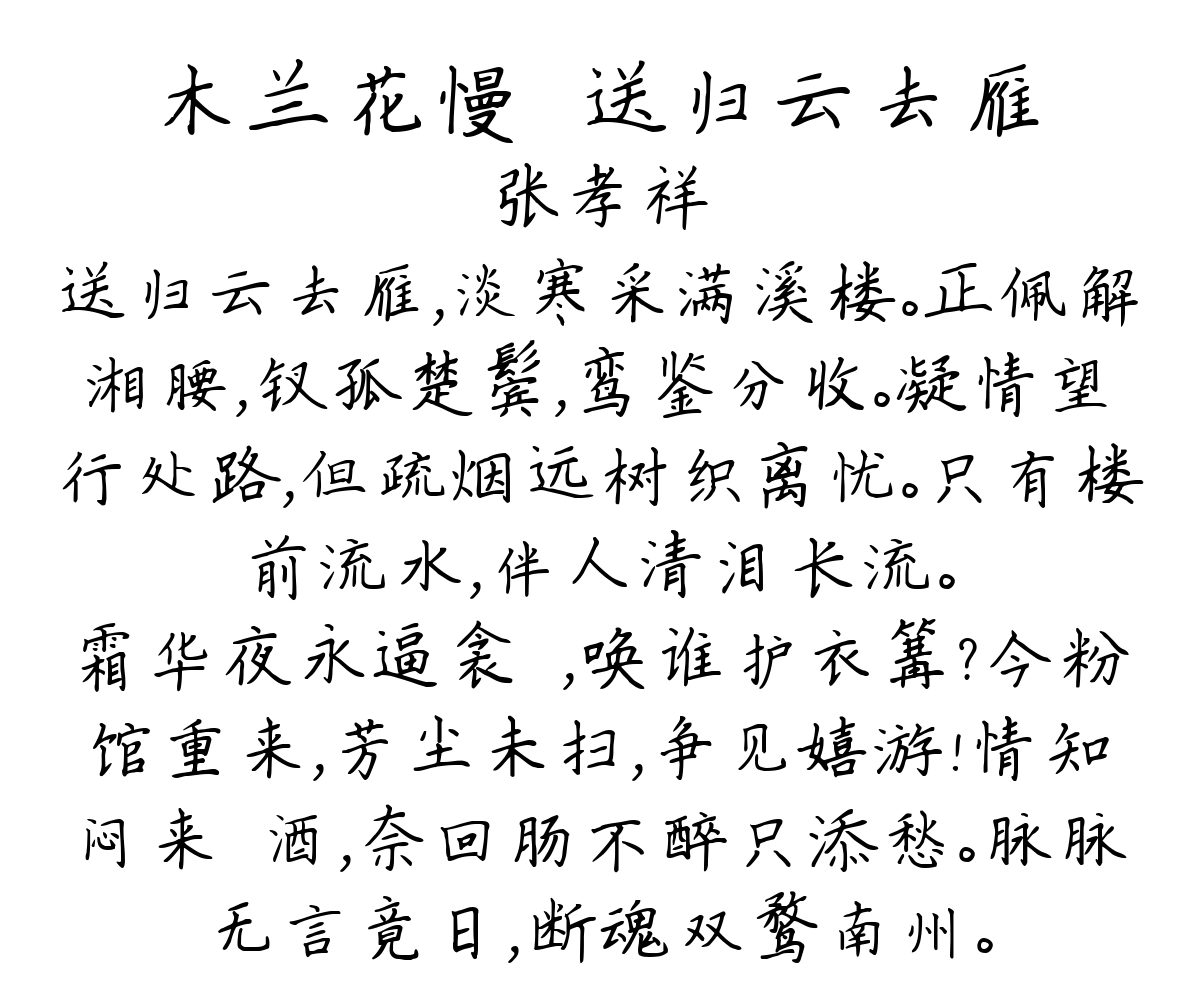 木兰花慢 送归云去雁
张孝祥
送归云去雁,淡寒采满溪楼。正佩解
湘腰,钗孤楚鬓,鸾鉴分收。凝情望
行处路,但疏烟远树织离忧。只有楼
前流水,伴人清泪长流。
霜华夜永逼衾 ,唤谁护衣篝?今粉
馆重来,芳尘未扫,争见嬉游!情知
闷来 酒,奈回肠不醉只添愁。脉脉
无言竟日,断魂双鹜南州。